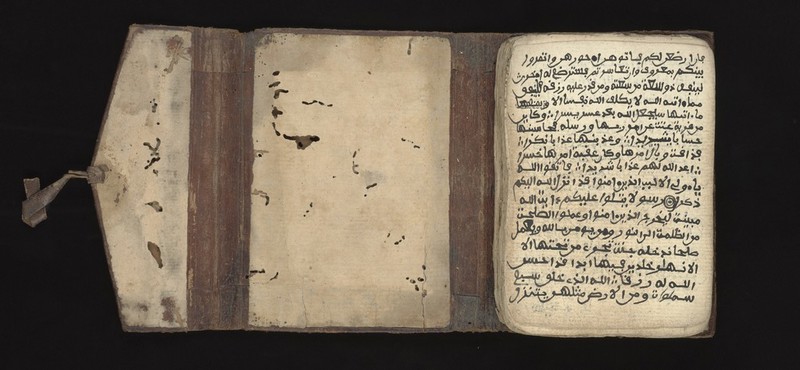 فإن ارضعن لكم فاتوهن اجورهن واتمروا
بينكم بمعروف وان تعاسرتم فسترضع له اخرى
لينفق ذو سعة من سعته ومن قدر عليه رزقه فلينفق
مما ءاتيه الله لا يكلف الله نفسا الا
ما ءاتيها سيجعل الله بعد عسر يسرا وكاين
من قرية عتت عن امر ربها ورسله فحاسبنها
حسابا شديدا وعذبنها عذابا نكرا
فذاقت وبال امرها وكان عقبة امرها خسرا
اعد الله لهم عذابا شديدا فاتقوا الله
ياولي الالبب الذين امنوا قد انزل الله اليكم
ذكرا رسولا يتلوا عليكم ءايت الله
مبينت ليخرج الذين امنوا وعملوا الصلحت
من الظلمت الى النور ومن يومن بالله ويعمل
صلحا ندخله جنت تجري من تحتها الا
الانهر خلدين فيها ابدا قد احسن
الله له رزقا الله الذي خلق سبع
سموت ومن الارض مثلهن يتنزل